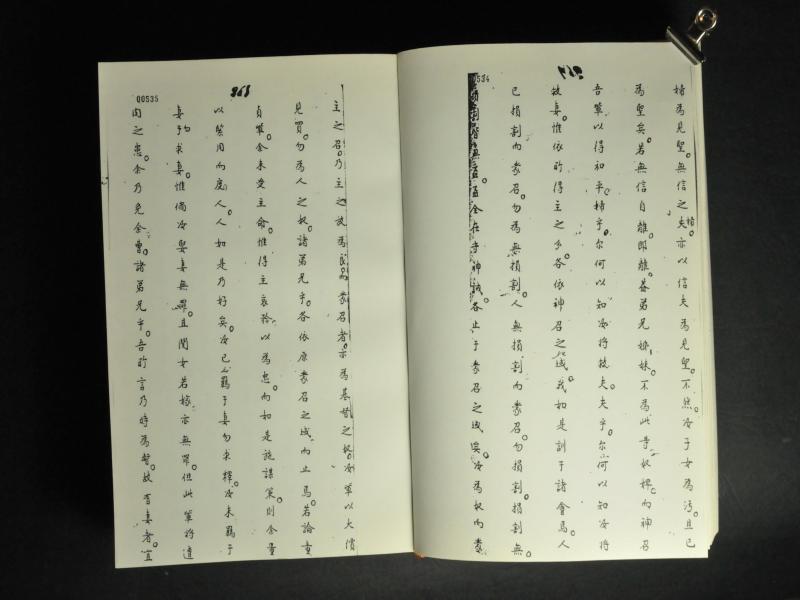 00534
婦為見聖。無信之夫婦亦以信夫為見聖。不然。汝子女為污。且已
為聖矣。若無信自離。即離。蓋弟兄嫂妹不為此等奴婢。而神召
吾輩以得和平。婦乎。尔何以知汝將救夫。夫乎。尔何以知汝將
救妻。惟依所得主之多。各依神召之域。我如是訓于諸會焉。人
已損割而蒙召。勿為無損割。人無損割而蒙召。勿損割。損割無
損割皆無益。益全在守神誡。各止于蒙召之域矣。汝為奴而蒙
00535
主之召。乃主之放為民。而蒙召者。亦為基督之奴。汝輩以大價
見買。勿為人之奴。諸弟兄乎。各依原蒙召之域而止焉。若論童
貞輩。余未受主命。惟得主哀矜以為忠。而如是施謀策。則余量
以緊用而度人。人如是乃好矣。汝已羈于妻勿求釋。汝未羈于
妻勿求妻。惟倘汝娶妻無罪。且閨女若嫁亦無罪。但此輩將遭
肉之患。余乃免余曹。諸弟兄乎。吾所言乃時為暫。故有妻者宜